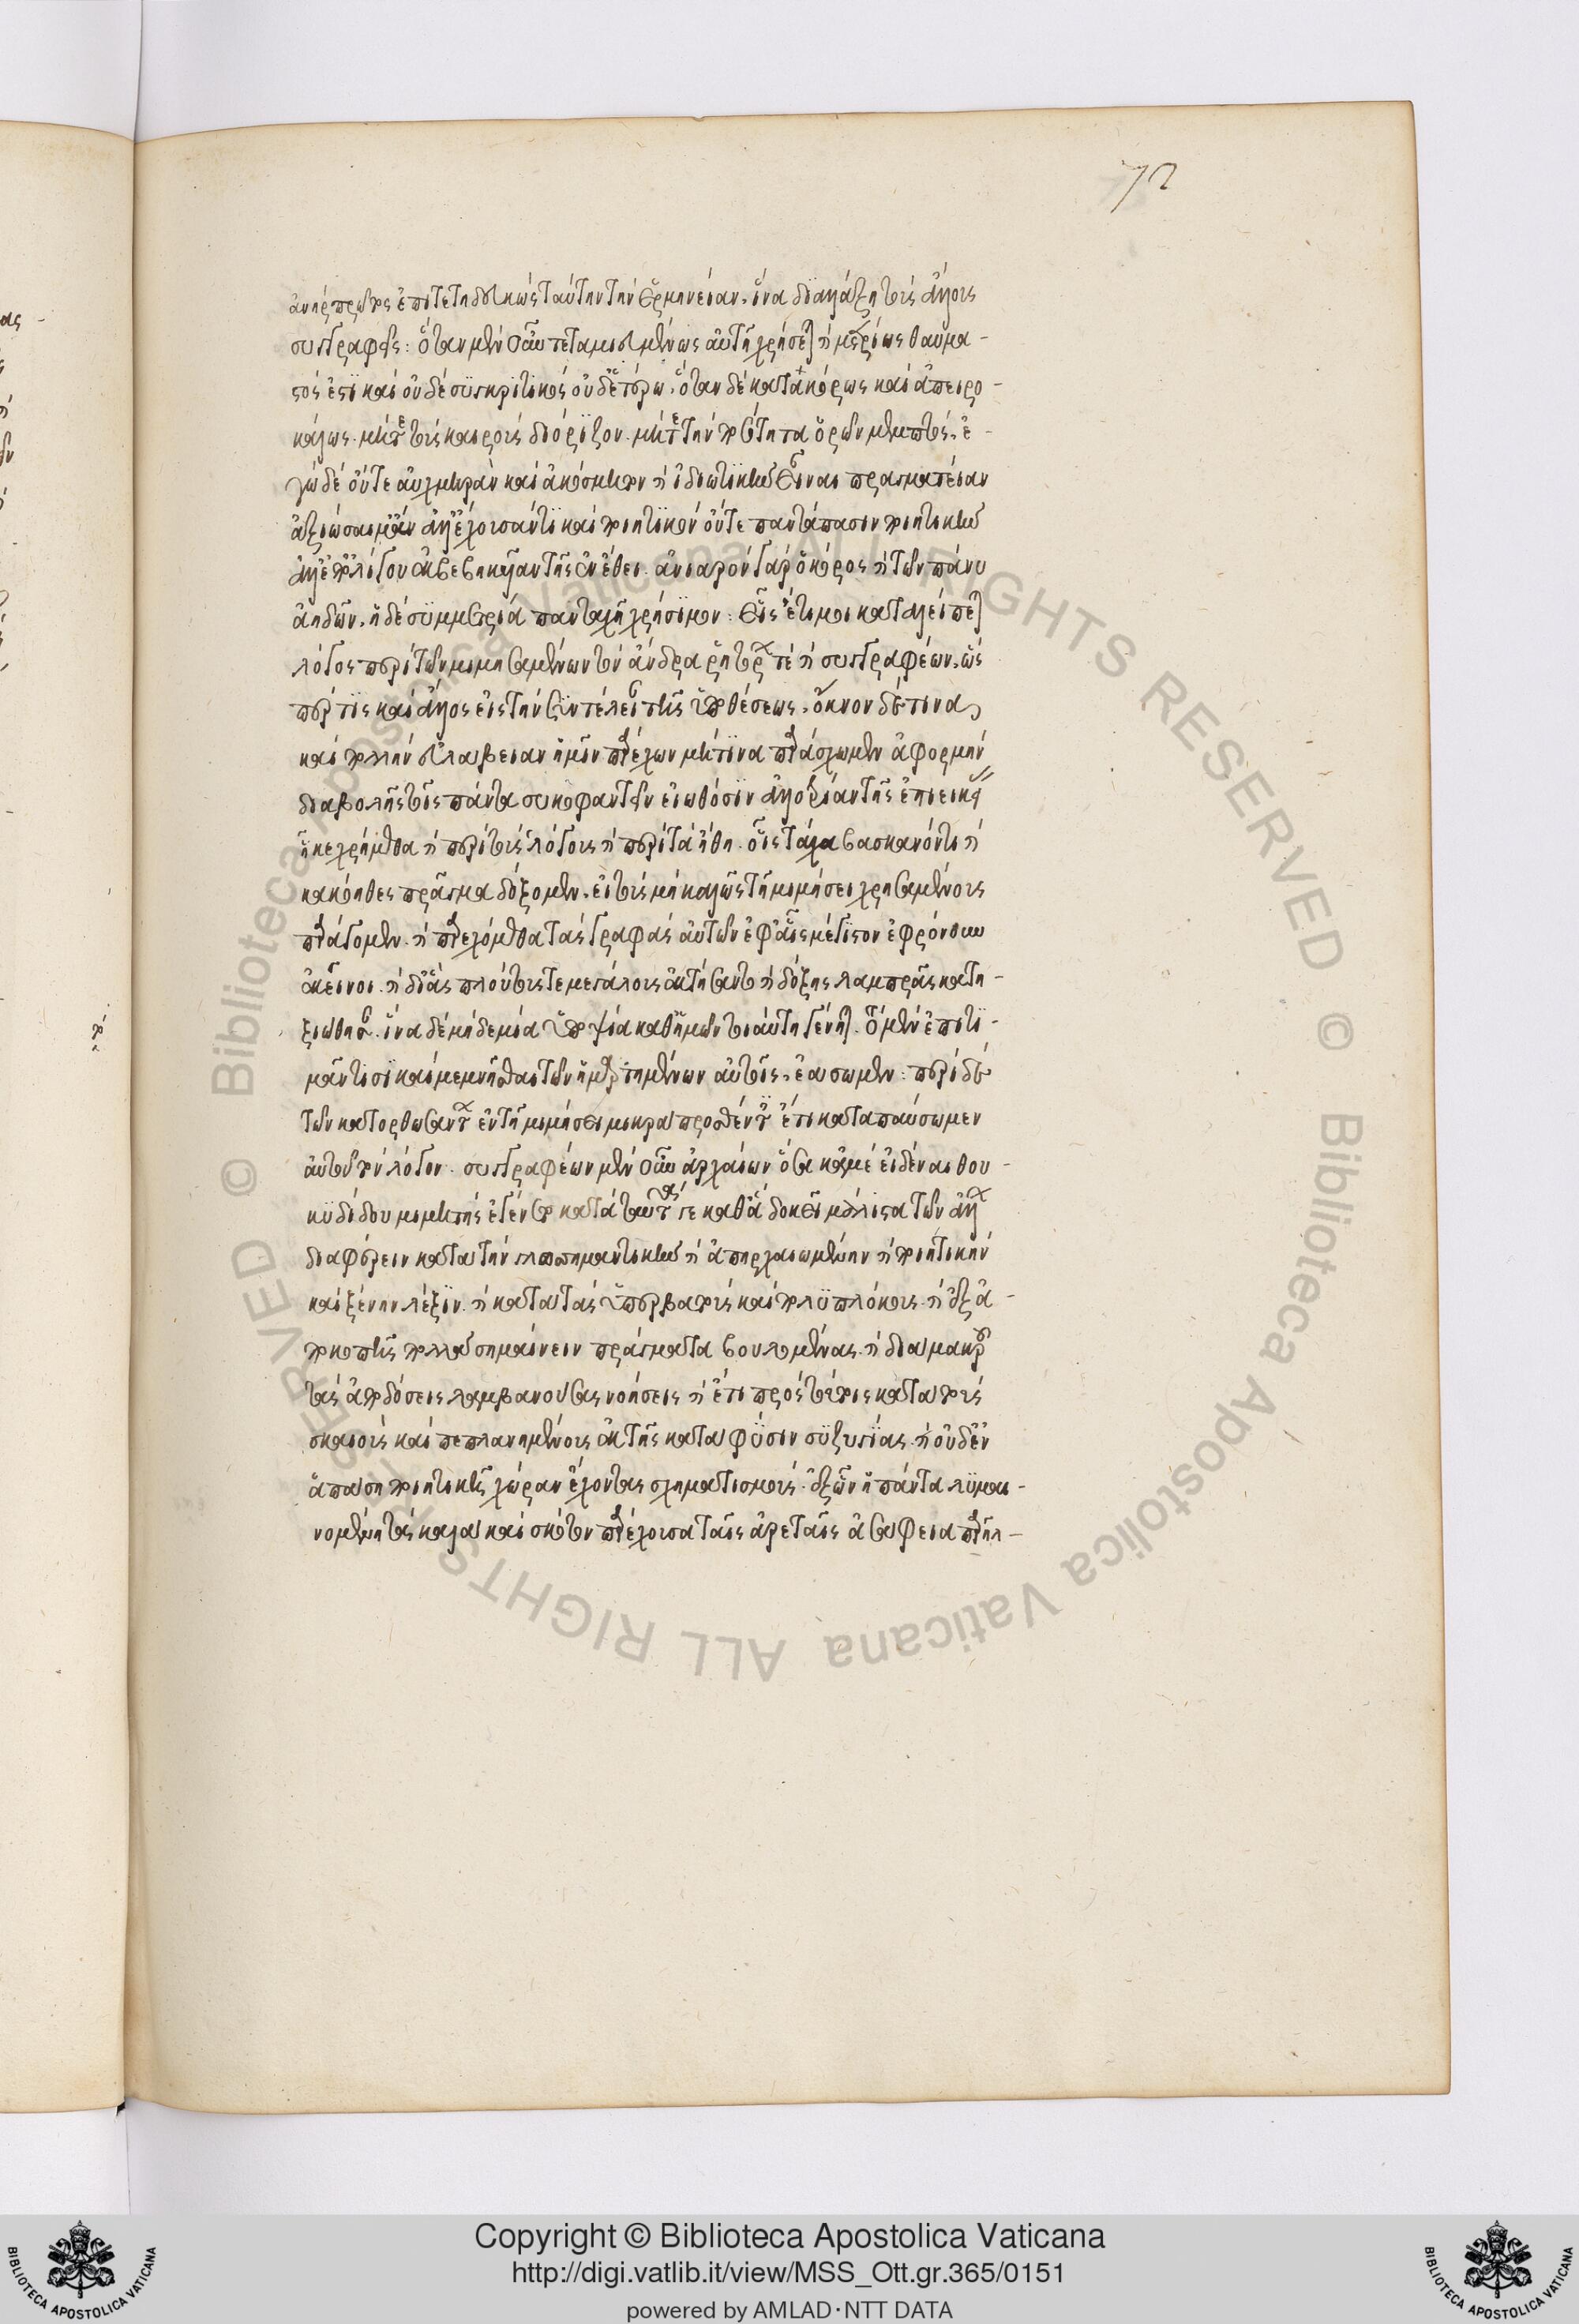 72
ἀνὴρ πρῶτος ἐπιτετήδευκὼς ταύτην τὴν ἑρμηνείαν, ἵνα διαλλάξῃ τοῖς ἄλλοις
συγγραφεῦσι: ὅταν μὲν οὖν τεταμιευμένως αὐτῇ χρήσεται καὶ μετρίως θαυμα-
στός ἐστι καὶ οὐδὲ συγκριτικὸς οὐδ' ἑτέρω, ὅταν δὲ κατακόρως καὶ ἀπειρο-
κάλως. μήτε τοὺς καιροὺς διορίζων. μήτε τὴν ποιότητα ὁρῶν μεμπτός. ἐ-
γὼ δὲ οὔτε αὐχμηρὰν καὶ ἀκόσμητον καὶ ἰδιωτικὴν εἶναι πραγματείαν
ἀξιώσαιμ' ἂν ἀλλ' ἔχουσάν τι καὶ ποιητικόν οὔτε παντάπασιν ποιητικὴν
ἀλλ' ἐπ' ὀλίγου ἐκβεβηκυῖαν τῆς ἐν ἔθει. ἀνιαρὸν γὰρ ὁ κόρος καὶ τῶν πάνυ
ἡδέων, ἡ δὲ συμμετρία πανταχῇ χρήσιμον: εἷς ἔτι μοι καταλείπεται
λόγος περὶ τῶν μιμησαμένων τὸν ἄνδρα ῥητόρων τε καὶ συγγραφέων, ὥσ
περ τις καὶ ἄλλος εἰς τὴν συντέλειαν τῆς ὑποθέσεως, ὄκνον δέ τινα
καὶ πολλὴν εὐλάβειαν ἡμῖν παρέχων μή τινα παράσχωμεν ἀφορμὴν
διαβολῆς τοῖς πάντα συκοφαντεῖν εἰωθόσιν ἀλλοτρίαν τῆς ἐπιεικείας
ᾗ κεχρήμεθα καὶ περὶ τοὺς λόγους καὶ περὶ τὰ ἤθη. οἷς τάχα βάσκανόν τι καὶ
κακόηθες πρᾶγμα δόξομεν, εἰ τοὺς μὴ καλῶς τῇ μιμήσει χρησαμένους
παράγομεν. καὶ παρεχόμεθα τὰς γραφὰς αὐτῶν ἐφ' αἷς μέγιστον ἐφρόνουν
ἐκεῖνοι. καὶ δι' ἃς πλούτους τε μεγάλους ἐκτήσαντο καὶ δόξης λαμπρᾶς κατη-
ξιώθησαν. ἵνα δὲ μηδεμία ὑποψία καθ' ἡμῶν τοιαύτη γένηται. τὸ μὲν ἐπιτι-
μᾶν τισι καὶ μεμνῆσθαι τῶν ἡμαρτημένων αὐτοῖς, ἐάσωμεν: περὶ δὲ
τῶν κατορθωσάντων ἐν τῇ μιμήσει μικρὰ προσθέντες ἔτι καταπαύσωμεν
αὐτοῦ τὸν λόγον. συγγραφέων μὲν οὖν ἀρχαίων ὅσα κἀμὲ εἰδέναι θου-
κυδίδου μιμητὴς ἐγένετο κατὰ ταῦτά γε καθ' ἃ δοκεῖ μάλιστα τῶν ἄλλων
διαφέρειν κατὰ τὴν γλωττηματικὴν καὶ ἀπηρχαιωμένην καὶ ποιητικὴν
καὶ ξένην λέξιν. καὶ κατὰ τὰς ὑπερβατοὺς καὶ πολυπλόκους. καὶ ἐξ ἀ-
ποκοπῆς πολλὰ σημαίνειν πράγματα βουλομένας. καὶ διὰ μακροῦ
τὰς ἀποδόσεις λαμβανούσας νοήσεις καὶ ἔτι πρὸς τούτοις κατὰ τοὺς
σκαιοὺς καὶ πεπλανημένους ἐκ τῆς κατὰ φύσιν συζυγίας. καὶ οὐδ' ἐν
ἁπάσῃ ποιητικῇ χώραν ἔχοντας σχηματισμούς. ἐξ ὧν ἡ πάντα λυμαι-
νομένη τὰ καλὰ καὶ σκότον παρέχουσα ταῖς ἀρεταῖς ἀσάφεια παρῆλ-
Copyright © Biblioteca Apostolica Vaticana
http://digi.vatlib.it/view/MSS_Ott.gr.365/0151
powered by AMLAD·NTT DATA